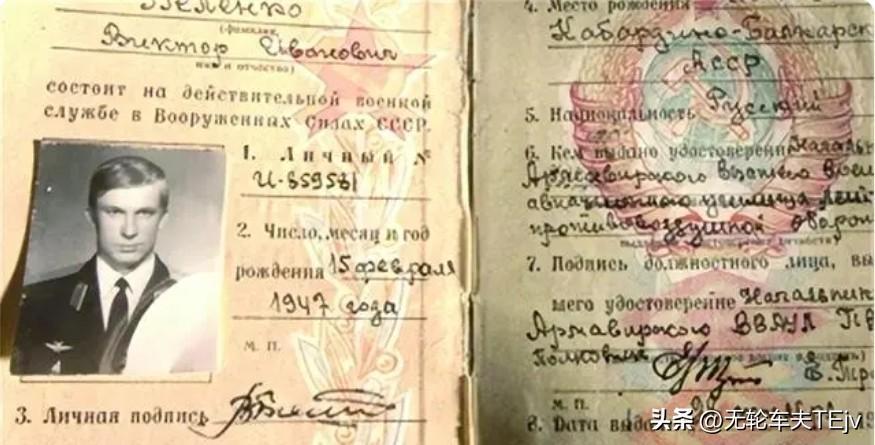 Беленко
(фамилия,
Виктор Иванович
имя и отчество)
состоит на действительной военной
службе в Вооруженных Силах СССР.
1. Личный №
И-859581
2. Число, месяц и год
рождения 15 февраля
1947 года
М. П.
3. Личная подпись
4. Место рождения
Кабардино-Балкарск
АССР
5. Национальность Русский
6. Кем выдано удостоверение Началь
Армавирского высшего вое
авиационного училища лет
противовоздушной оборон
7. Подпись должностного лица, вы
шего удостоверение Начальник
Армавирского ВВАУЛ ПВ
Полковник
М. П.
8. Дата выда
头条 @无轮车夫TEjv